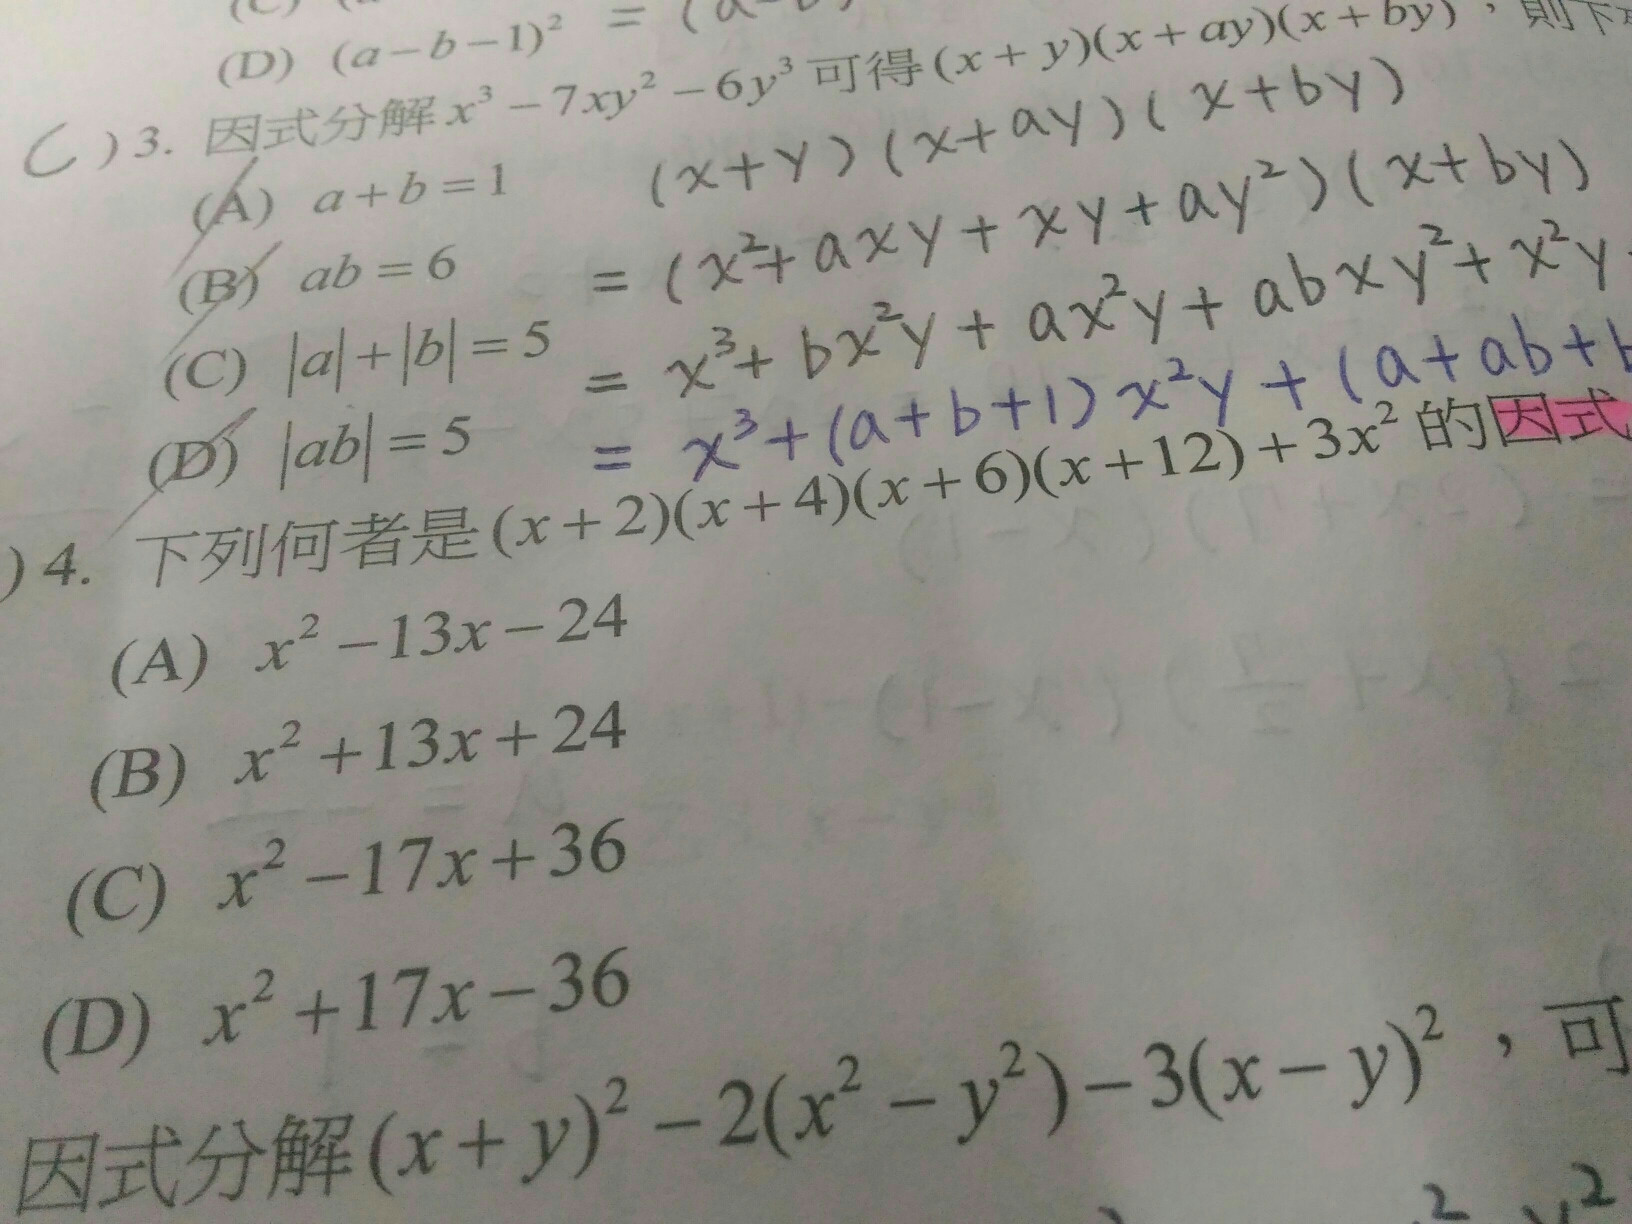 (D) (a−b−1)² = (a
C )3. 因式分解x³−7xy²−6y³可得(x+y)(x+ay)(x+by),則下
(x+y)(x+ay)(x+by)
(A) a+b=1
= (x²+axy+xy+ay²)(x+by)
(B) ab=6
= x³+bx²y+ax²y+abxy²+x²y
(C) |a|+|b|=5
= x³+(a+b+1)x²y+(a+ab+b
(D) |ab|=5
)4. 下列何者是(x+2)(x+4)(x+6)(x+12)+3x²的因式
(A) x²−13x−24
(B) x²+13x+24
(C) x²−17x+36
(D) x²+17x−36
因式分解(x+y)²−2(x²−y²)−3(x−y)²,可